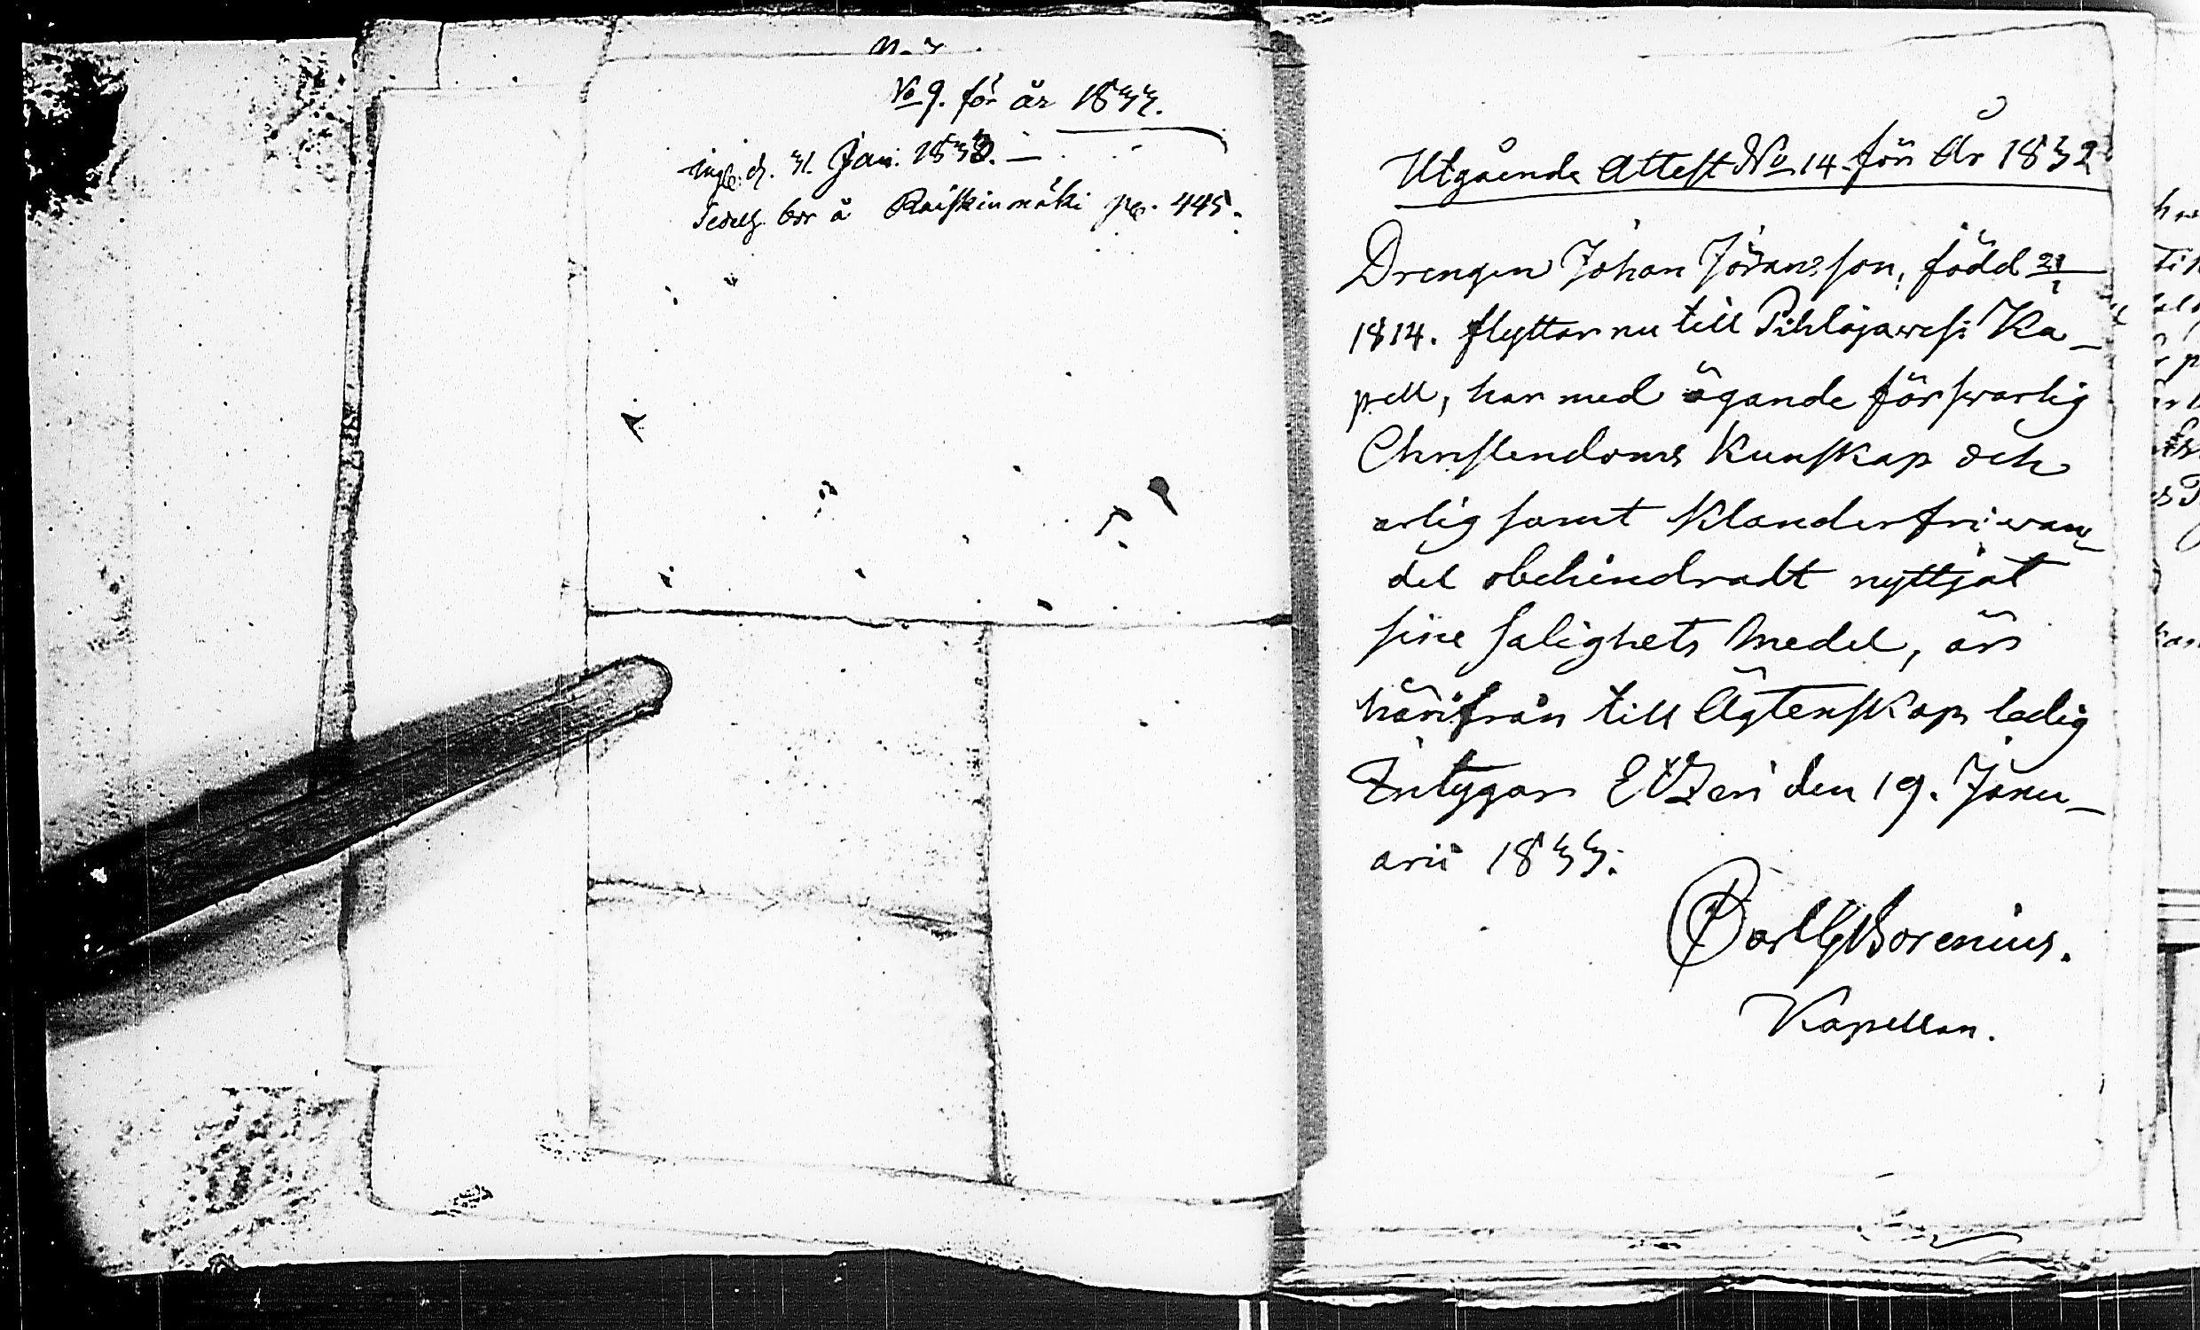 No 9. för år 1833.
ingb. d. 31. Jan. 1833. —
bor å Raiskinmäki pg. 445.
Utgående Attest No 14. för År 1832
Drengen Johan Jöransson, född 21
1814. flyttar nu till Pihlajawesi Ka-
pell, har med ägande förswarlig
Christendoms Kunskap och
ärlig samt Klanderfri wan-
del obehindradt nyttjat
sine Salighets Medel, är
härifrån till Ägtenskap ledig
Intygar Etzeri den 19. Janu-
arii 1833.
Carl G Borenius.
Kapellan.